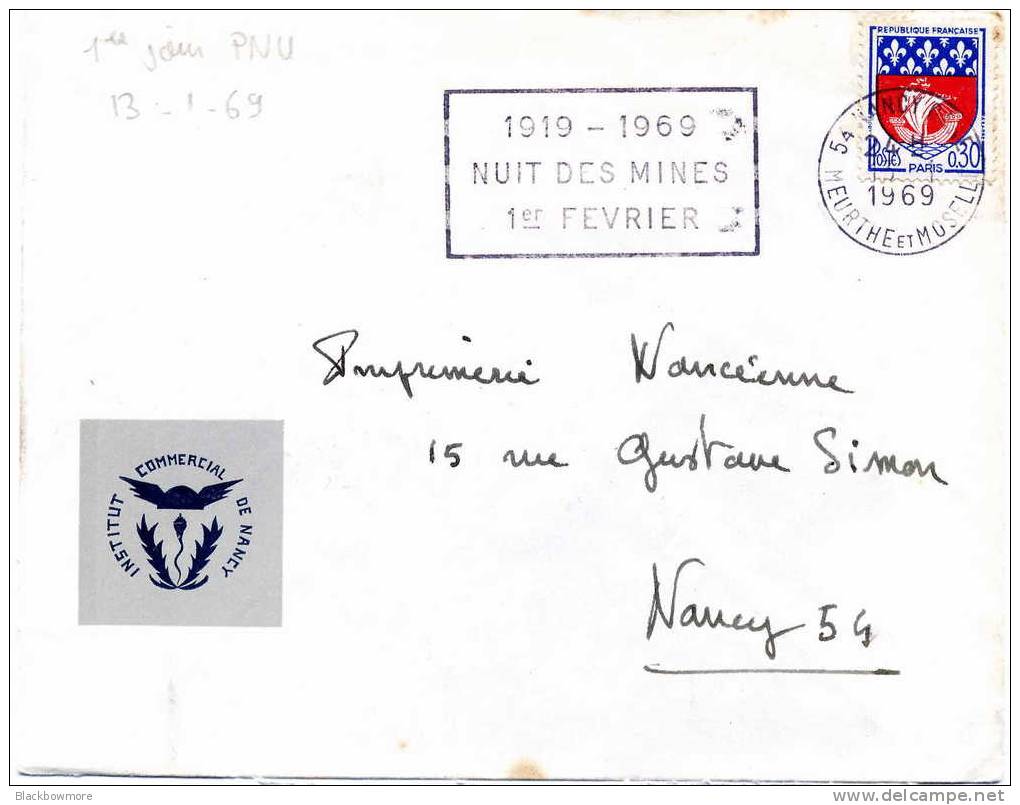 1ère jour PNU
13-1-69
1919 - 1969
NUIT DES MINES
1er FEVRIER
REPUBLIQUE FRANÇAISE
POSTES 0,30
PARIS
54 NANCY
1969
MEURTHE ET MOSELLE
Imprimerie Nancéienne
15 rue Gustave Simon
Nancy 54
INSTITUT COMMERCIAL DE NANCY
Blackbowmore
delcampe.net